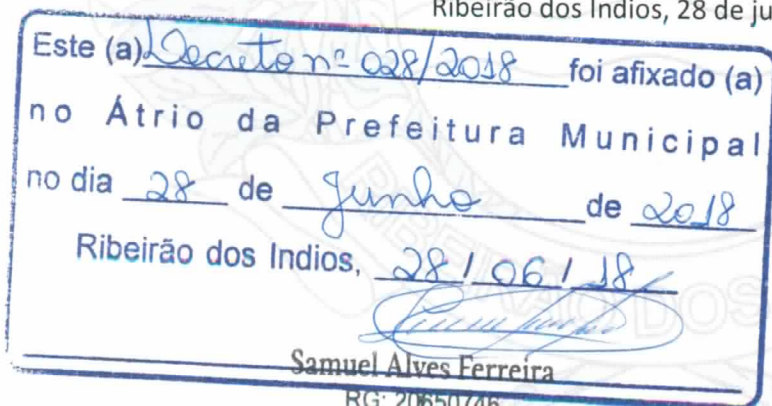 Ribeirão dos Indios, 28 de ju
Este (a) Decreto nº 028/2018 foi afixado (a)
no Átrio da Prefeitura Municipal
no dia 28 de Junho de 2018
Ribeirão dos Indios, 28 / 06 / 18
Samuel Alves Ferreira
RG: 20650746